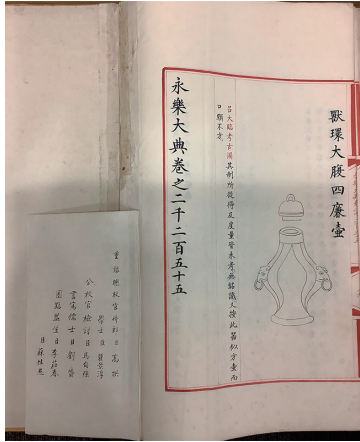 獸環大腹四廉壺
呂大臨考古圖其制所從得及度量皆未考無銘識又按此器似方壺而
口頸不方
永樂大典卷之二千二百五十五
重錄總校官侍郎臣高拱
學士臣瞿景淳
分校官檢討臣馬自強
書寫儒士臣劉
圈點監生臣李莊春
臣蘇